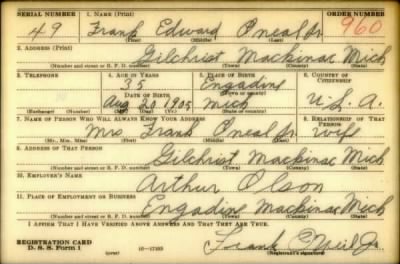 SERIAL NUMBER 1. NAME (Print) ORDER NUMBER
49 Frank Edward Oneal Jr 960
(First) (Middle) (Last)
2. ADDRESS (Print)
Gilchrist Mackinac Mich
(Number and street or R. F. D. number) (Town) (County) (State)
3. TELEPHONE 4. AGE IN YEARS 5. PLACE OF BIRTH 6. COUNTRY OF CITIZENSHIP
35 Engadine
DATE OF BIRTH (Town or county)
Aug 20 1905 Mich U.S.A.
(Exchange) (Number) (Mo.) (Day) (Yr.) (State or country)
7. NAME OF PERSON WHO WILL ALWAYS KNOW YOUR ADDRESS 8. RELATIONSHIP OF THAT PERSON
Mrs Frank Oneal Jr. wife
(Mr., Mrs., Miss) (First) (Middle) (Last)
9. ADDRESS OF THAT PERSON
Gilchrist Mackinac Mich
(Number and street or R. F. D. number) (Town) (County) (State)
10. EMPLOYER'S NAME
Arthur Olson
11. PLACE OF EMPLOYMENT OR BUSINESS
Engadine Mackinac Mich
(Number and street or R. F. D. number) (Town) (County) (State)
I AFFIRM THAT I HAVE VERIFIED ABOVE ANSWERS AND THAT THEY ARE TRUE.
REGISTRATION CARD
D. S. S. Form 1 (over) 16—17105 Frank O'Neil Jr.
(Registrant's signature)